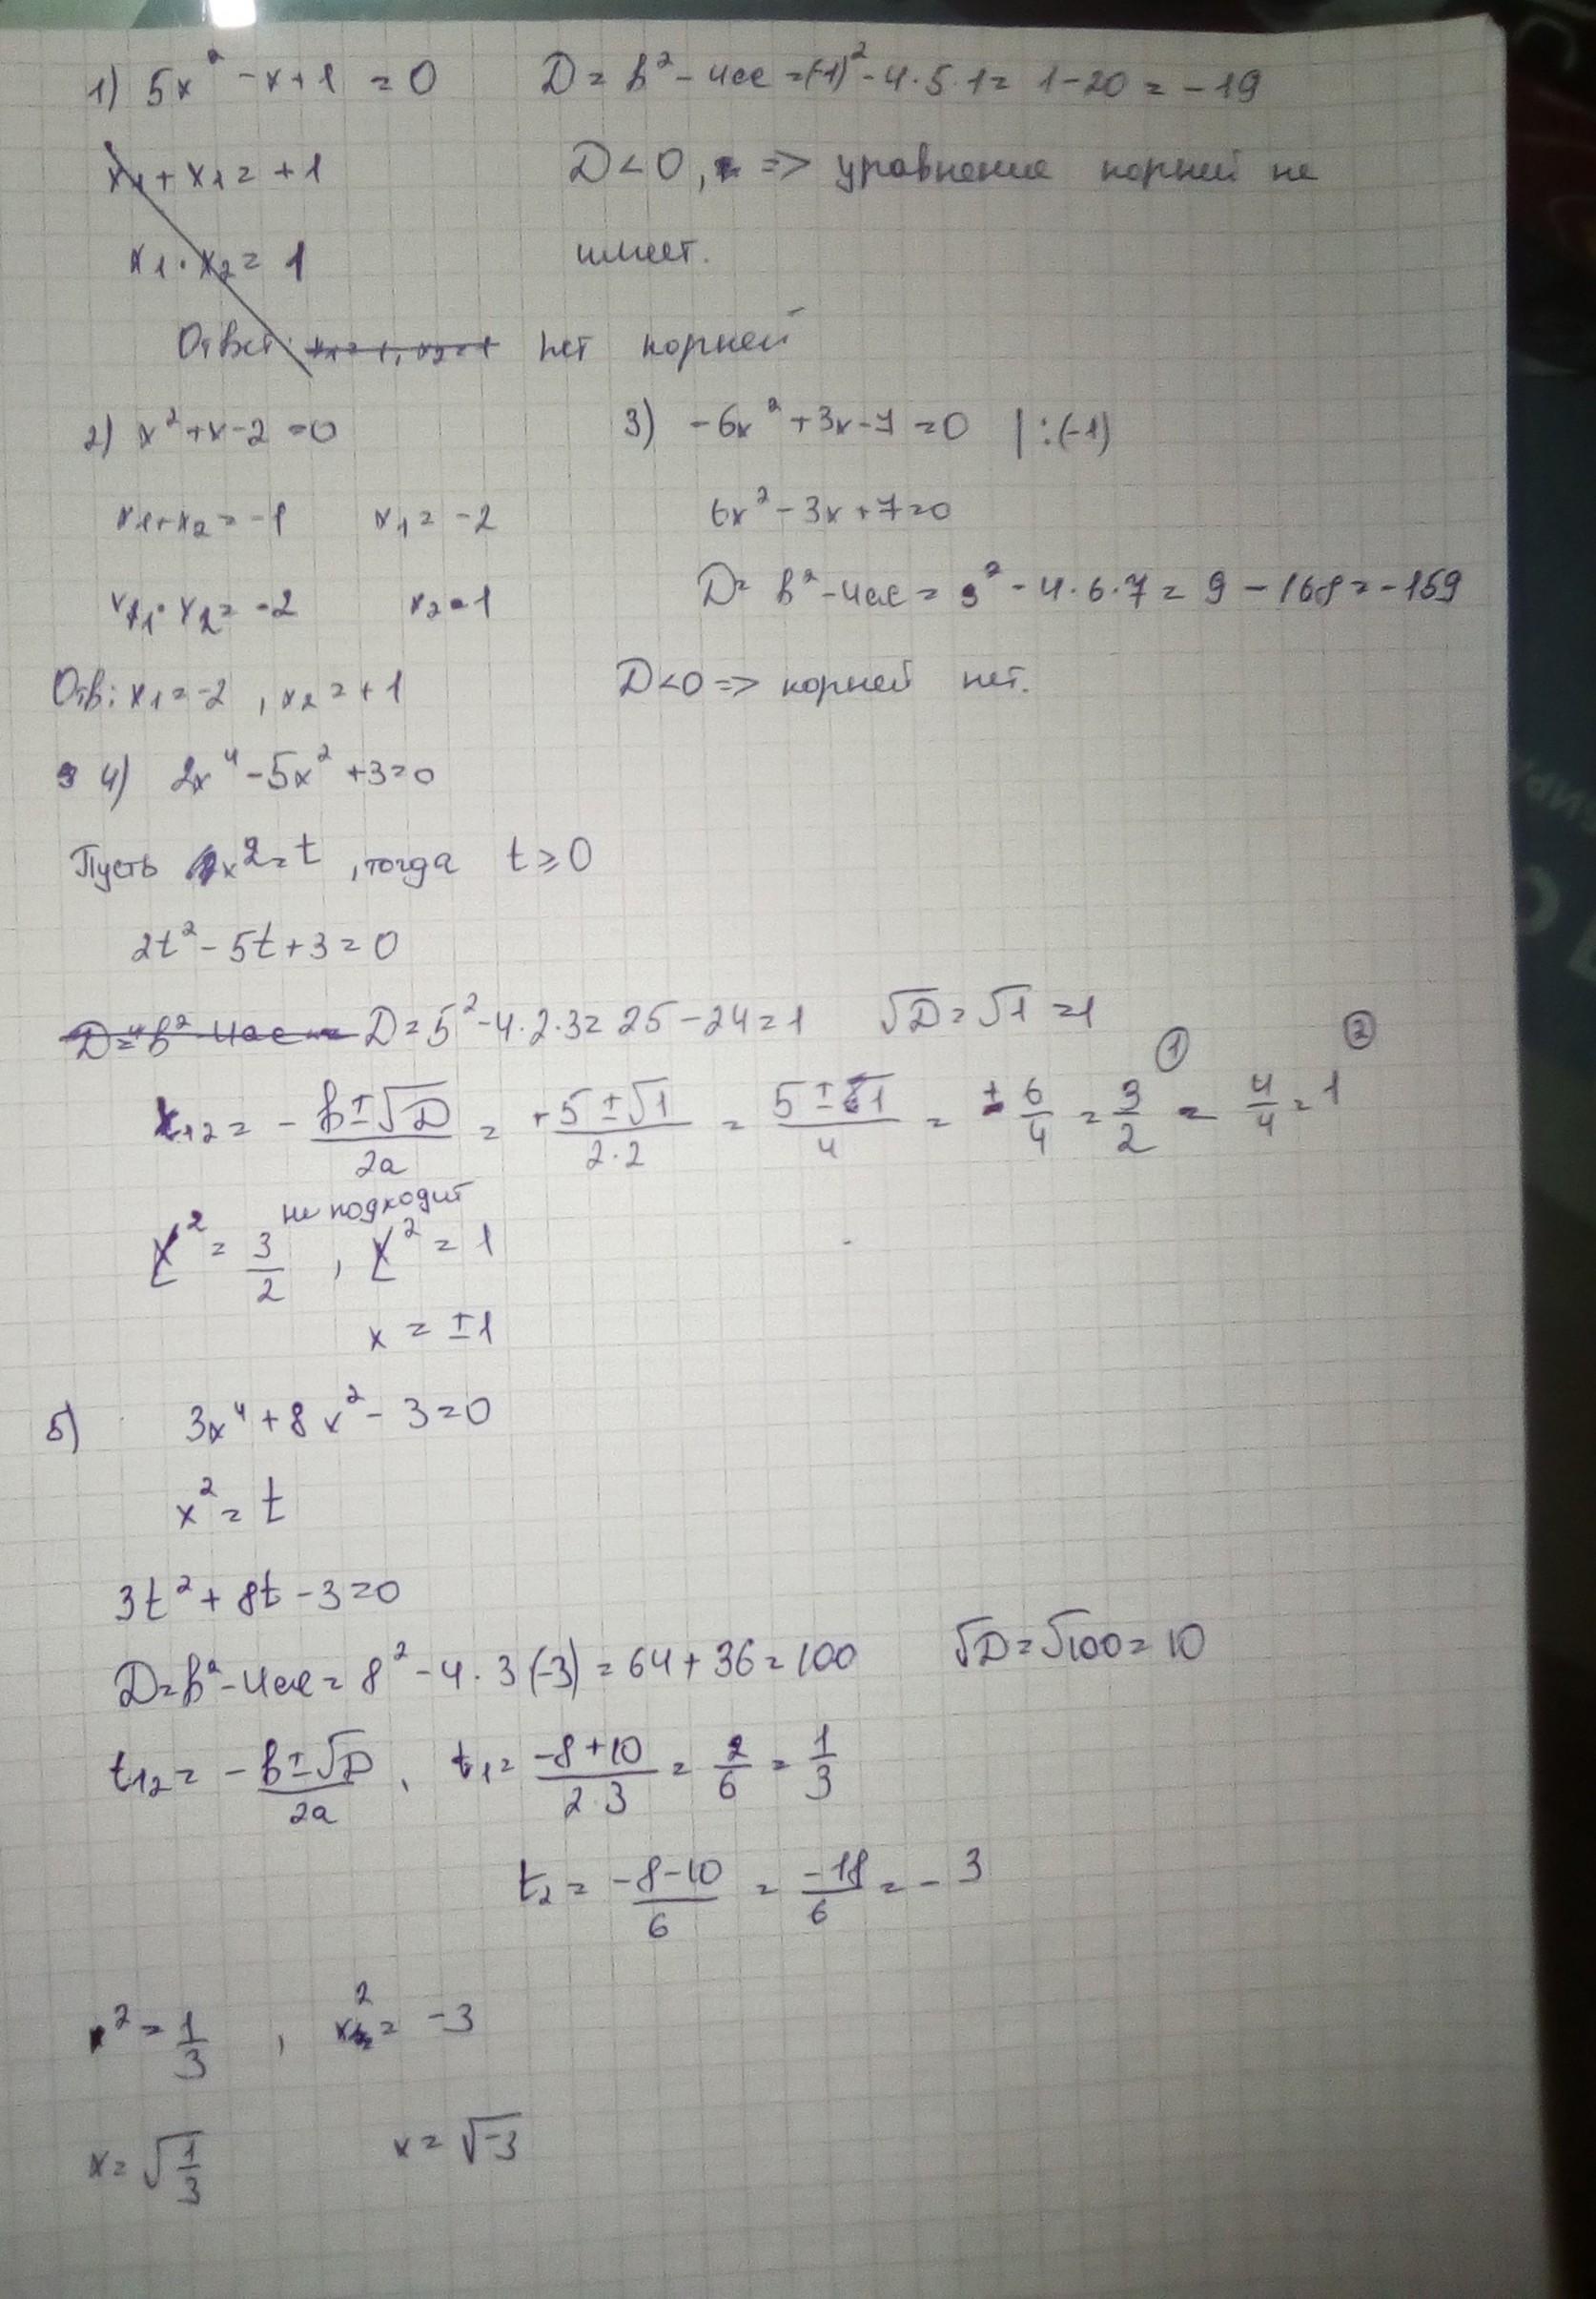 1) 5x² - x + 1 = 0 D = b² - 4ac = (-1)² - 4·5·1 = 1 - 20 = -19
x₁ + x₂ = +1 D < 0, => уравнение корней не
x₁ · x₂ = 1 имеет.
Ответ: нет корней
2) x² + x - 2 = 0
x₁ + x₂ = -1 x₁ = -2
x₁ · x₂ = -2 x₂ = 1
Отв: x₁ = -2, x₂ = +1
3) -6x² + 3x - 7 = 0 | :(-1)
6x² - 3x + 7 = 0
D = b² - 4ac = 3² - 4·6·7 = 9 - 168 = -159
D < 0 => корней нет.
4) 2x⁴ - 5x² + 3 = 0
Пусть x² = t, тогда t ≥ 0
2t² - 5t + 3 = 0
D = b² - 4ac = D = 5² - 4·2·3 = 25 - 24 = 1 √D = √1 = 1
x₁₂ = - (b ± √D)/2a = (+5 ± √1)/(2·2) = (5 ± 1)/4 = ± 6/4 = 3/2 ① = 4/4 = 1 ②
x² = 3/2 не подходит, x² = 1
x = ±1
5) 3x⁴ + 8x² - 3 = 0
x² = t
3t² + 8t - 3 = 0
D = b² - 4ac = 8² - 4·3(-3) = 64 + 36 = 100 √D = √100 = 10
t₁₂ = - (b ± √D)/2a, t₁ = (-8 + 10)/(2·3) = 2/6 = 1/3
t₂ = (-8 - 10)/6 = -18/6 = -3
x² = 1/3, x² = -3
x = √(1/3) x = √-3